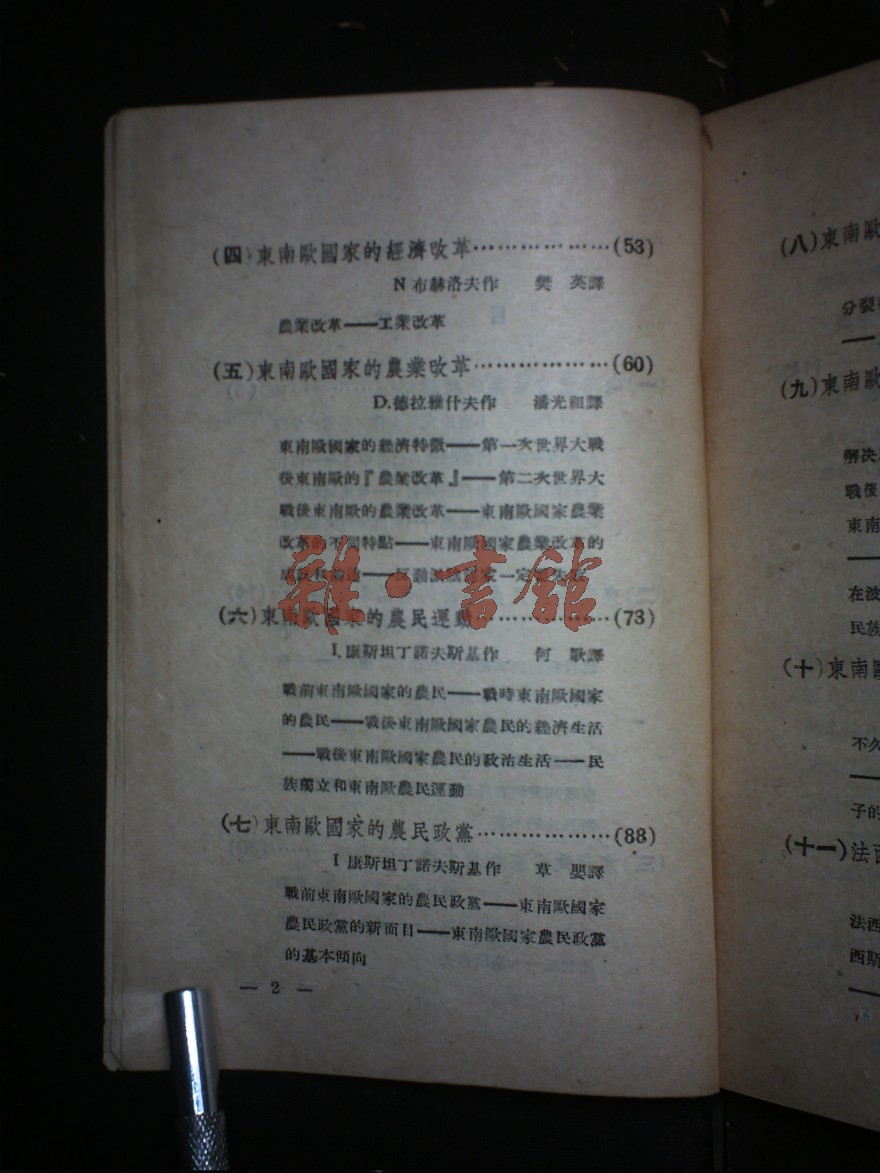 (四)東南歐國家的經濟改革………………(53)
N 布赫洛夫作 樊英譯
農業改革——工業改革
(五)東南歐國家的農業改革………………(60)
D.德拉雅什夫作 潘光祖譯
東南歐國家的經濟特徵——第一次世界大戰
後東南歐的『農業改革』——第二次世界大
戰後東南歐的農業改革——東南歐國家農業
改革的不同特點——東南歐國家農業改革的
一定
雜·書館
(六)東南歐國家的農民運動………………(73)
I.康斯坦丁諾夫斯基作 何歌譯
戰前東南歐國家的農民——戰時東南歐國家
的農民——戰後東南歐國家農民的經濟生活
——戰後東南歐國家農民的政治生活——民
族獨立和東南歐農民運動
(七)東南歐國家的農民政黨………………(88)
I 康斯坦丁諾夫斯基作 草嬰譯
戰前東南歐國家的農民政黨——東南歐國家
農民政黨的新面目——東南歐國家農民政黨
的基本傾向
— 2 —
(八)東南歐
分裂
——
(九)東南歐
解決
戰後
東南
——
在波
民族
(十)東南歐
不久
——
子的
(十一)法西
法西
西斯
——